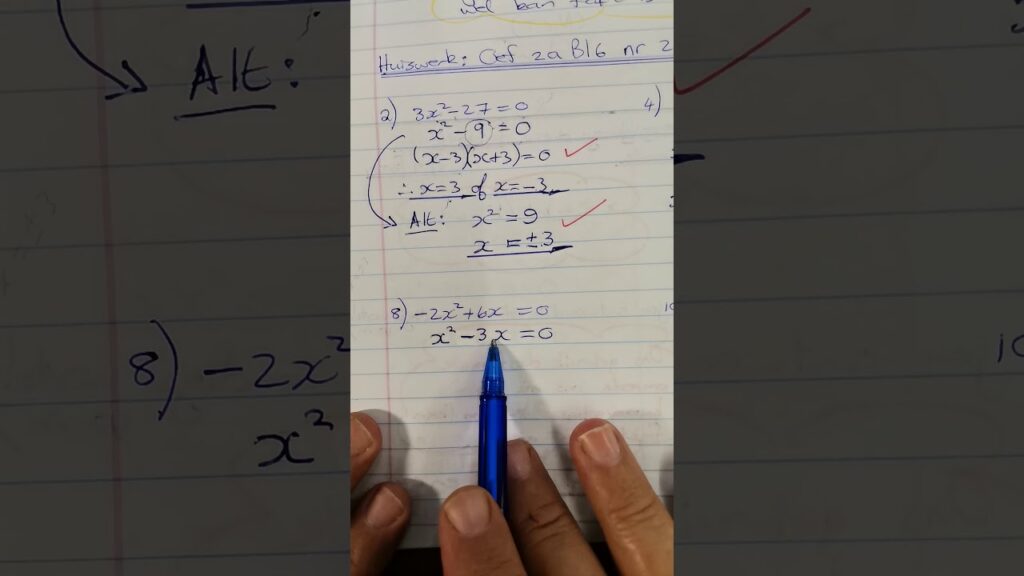 Huiswerk: Oef 2a Bl6 nr 2
2) 3x²-27=0
x²-9=0
(x-3)(x+3)=0
∴x=3 of x=-3
Alt: x²=9
x=±3
4)
8) -2x²+6x=0
x²-3x=0
10
Alt:
8) -2x²
x²